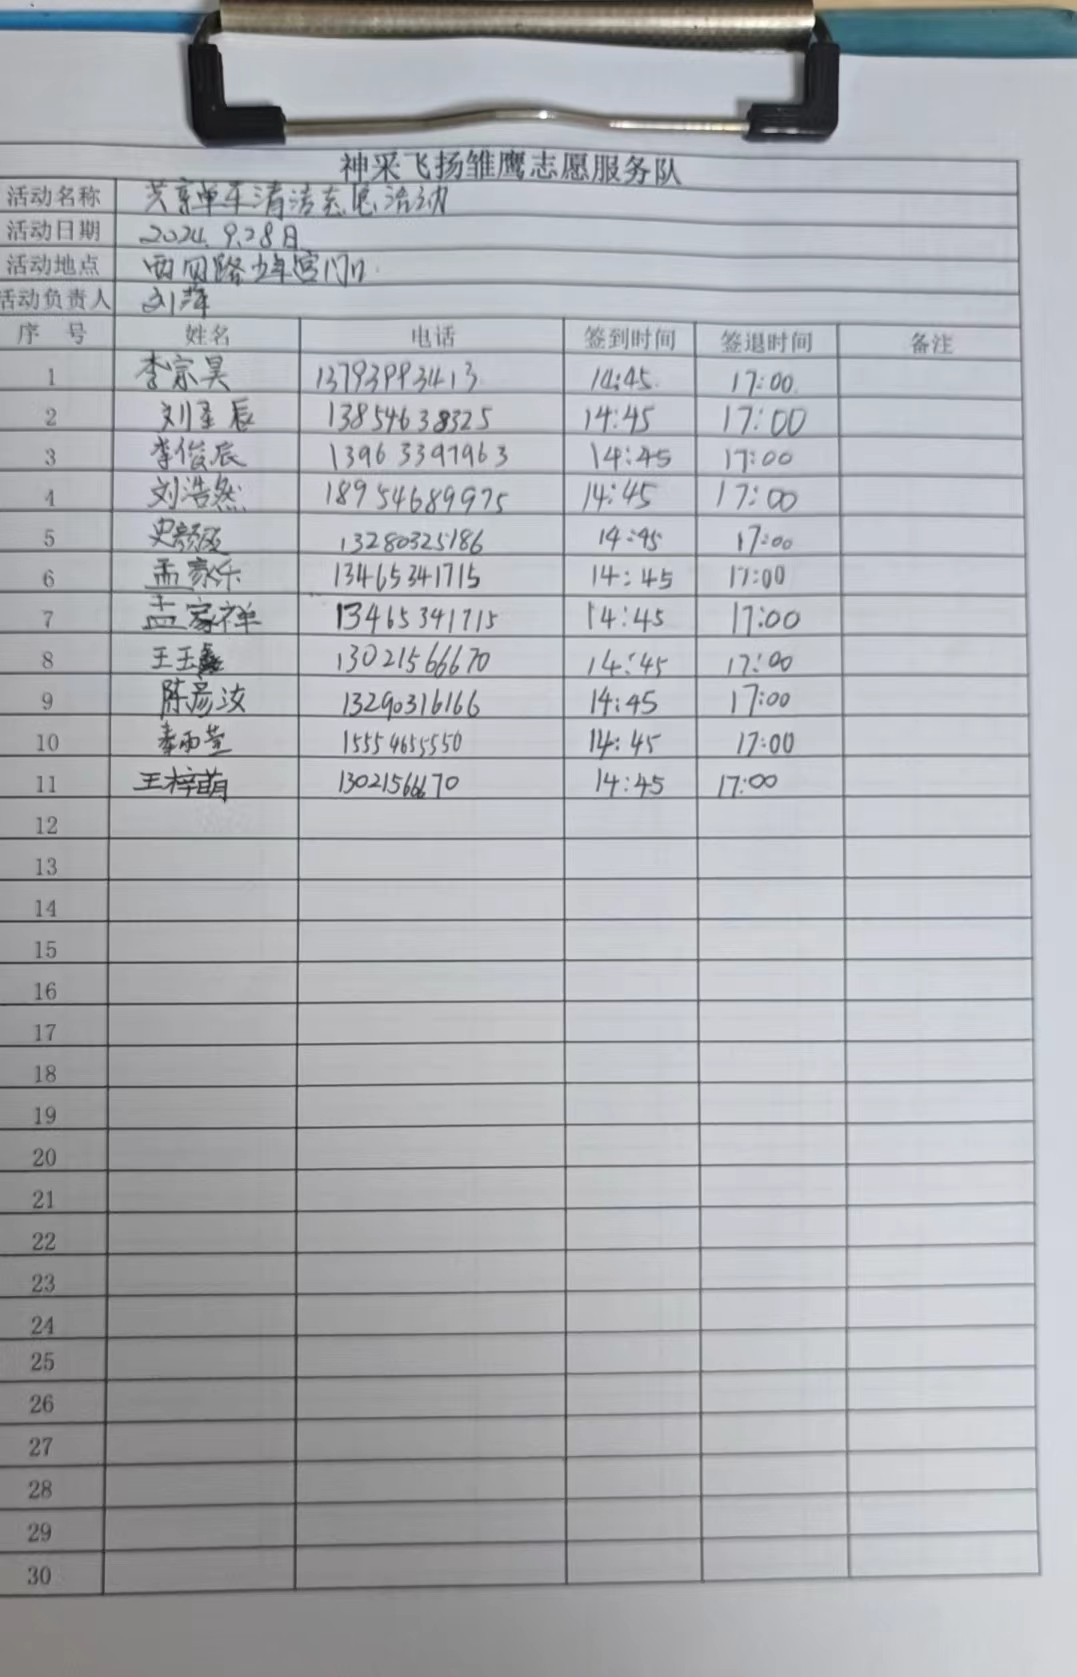 神采飞扬雏鹰志愿服务队
活动名称 共享单车清洁志愿活动
活动日期 2024.9.28日
活动地点 西四路少年宫门口
活动负责人 刘萍
序 号 姓名 电话 签到时间 签退时间 备注
1 李宗昊 13793993413 14:45 17:00
2 刘星辰 13854638325 14:45 17:00
3 李俊辰 13963397963 14:45 17:00
4 刘浩然 18954689975 14:45 17:00
5 史 13280325186 14:45 17:00
6 孟家乐 13465341715 14:45 17:00
7 孟家祥 13465341715 14:45 17:00
8 王玉鑫 13021566670 14:45 17:00
9 陈彦汝 13290316166 14:45 17:00
10 15554655550 14:45 17:00
11 王梓萌 13021566670 14:45 17:00
12
13
14
15
16
17
18
19
20
21
22
23
24
25
26
27
28
29
30